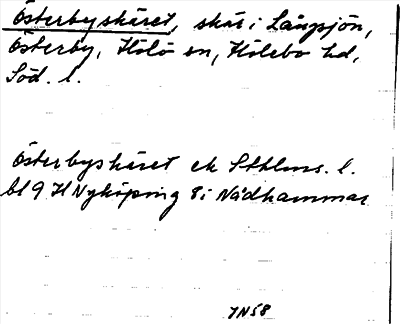 Österbyskäret, skär i Långsjön,
Österby, Hölö sn, Hölebo hd,
Söd. l.
Österbyskäret ek Sthlms. l.
bl 9 H Nyköping 8i Nådhammar
JN58